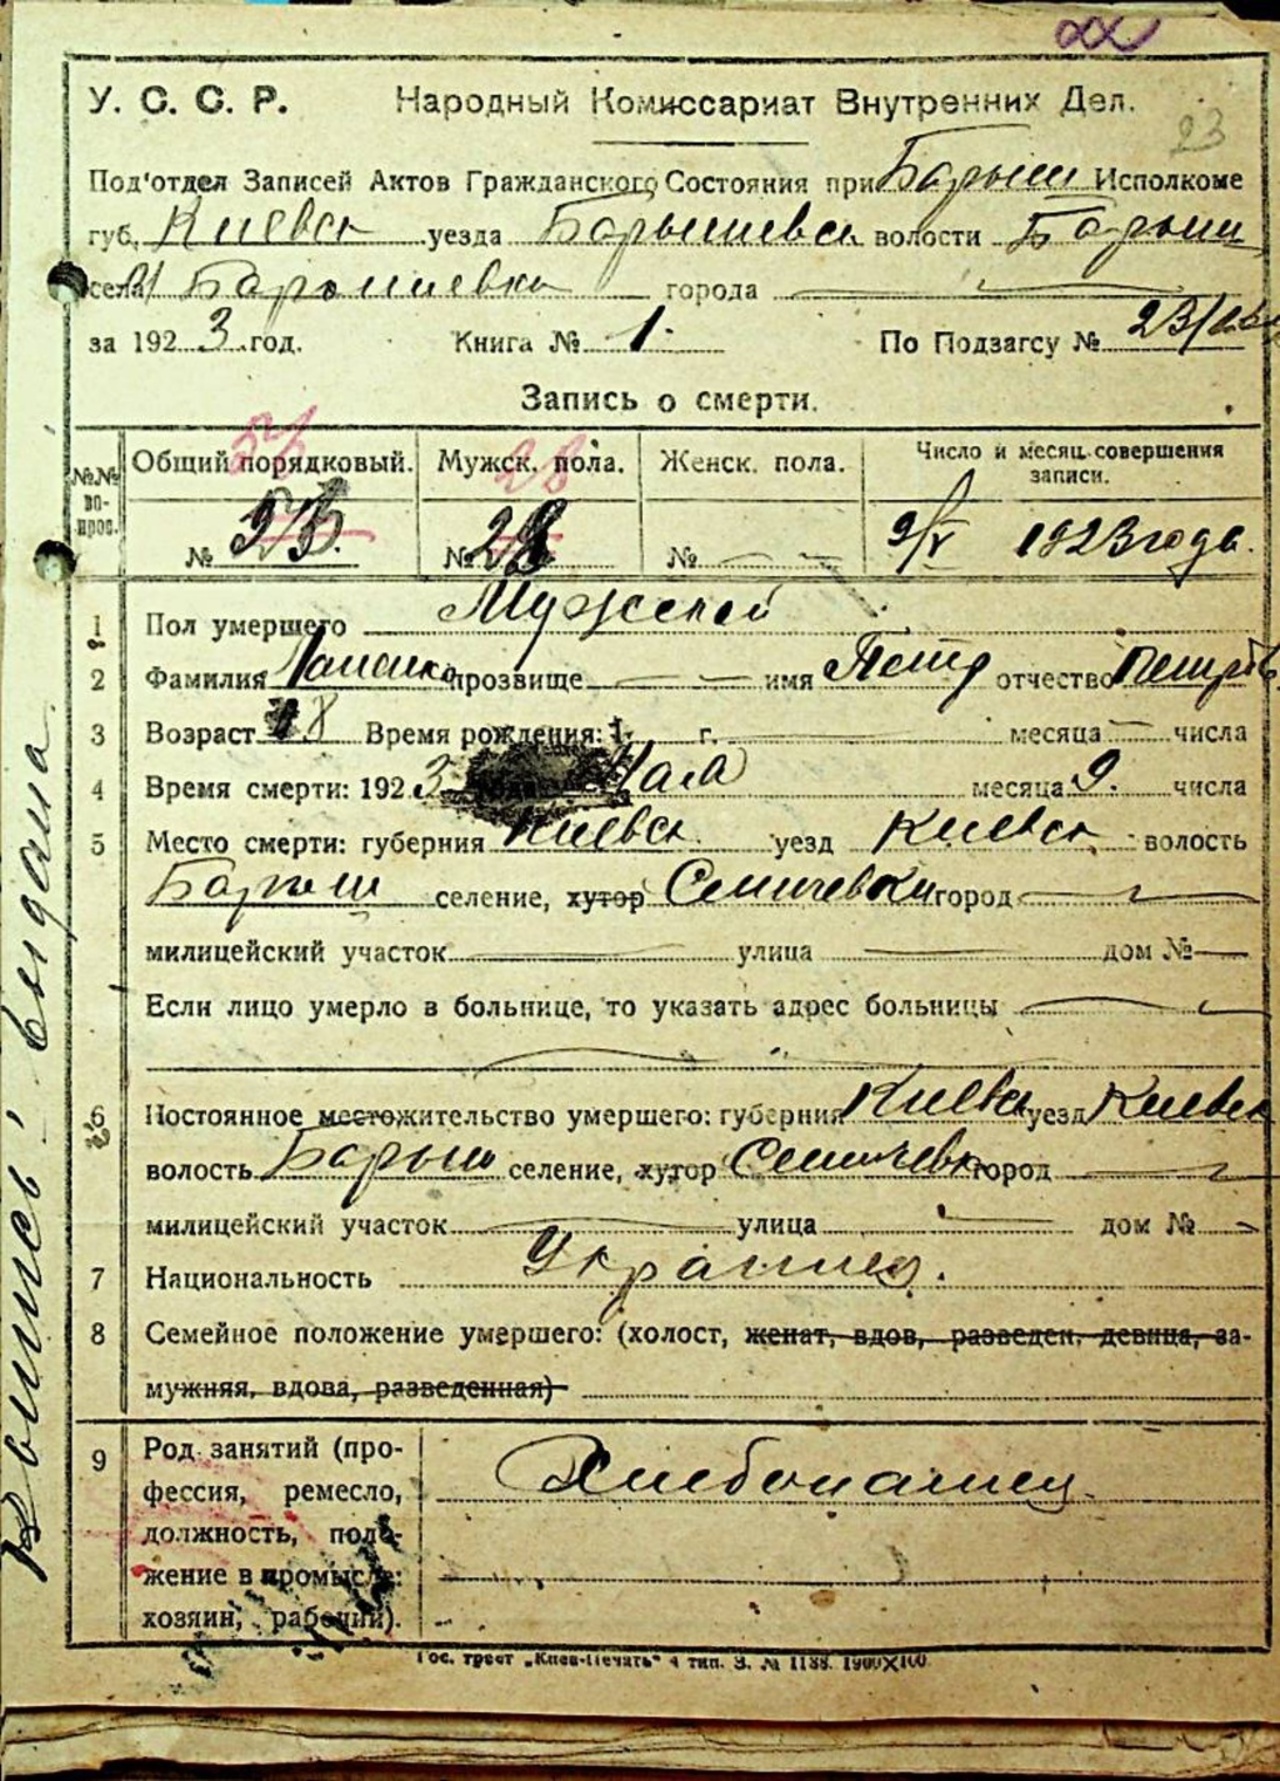 23
У. С. С. Р. Народный Комиссариат Внутренних Дел.
Под'отдел Записей Актов Гражданского Состояния при Барыш Исполкоме
губ. Киевск уезда Барышевск волости Барыш
села Барышевка города
за 1923 год. Книга № 1. По Подзагсу № 23/
Запись о смерти.
№№ вопрос. Общий порядковый. Мужск. пола. Женск. пола. Число и месяц совершения записи.
№ № 28 № 9/V 1923 года.
1 Пол умершего Мужской
2 Фамилия прозвище имя Петр отчество Петров
3 Возраст 18 Время рождения: 1 г. месяца числа
4 Время смерти: 1923 Мая месяца 9. числа
5 Место смерти: губерния Киевск. уезд Киевск волость
Барыш селение, хутор Сеничевки город
милицейский участок улица дом №
Если лицо умерло в больнице, то указать адрес больницы
6 Постоянное местожительство умершего: губерния Киевск уезд Киевск
волость Барыш селение, хутор Сеничевк город
милицейский участок улица дом №
7 Национальность Украинец.
8 Семейное положение умершего: (холост, женат, вдов, разведен, девица, за-
мужняя, вдова, разведенная)
9 Род занятий (про-
фессия, ремесло,
должность, поло-
жение в промысле:
хозяин, рабочий).
Хлебопашец
Гос. трест „Киев-Печать" 4 тип. З. № 1188. 1900X100
Выпись выдана